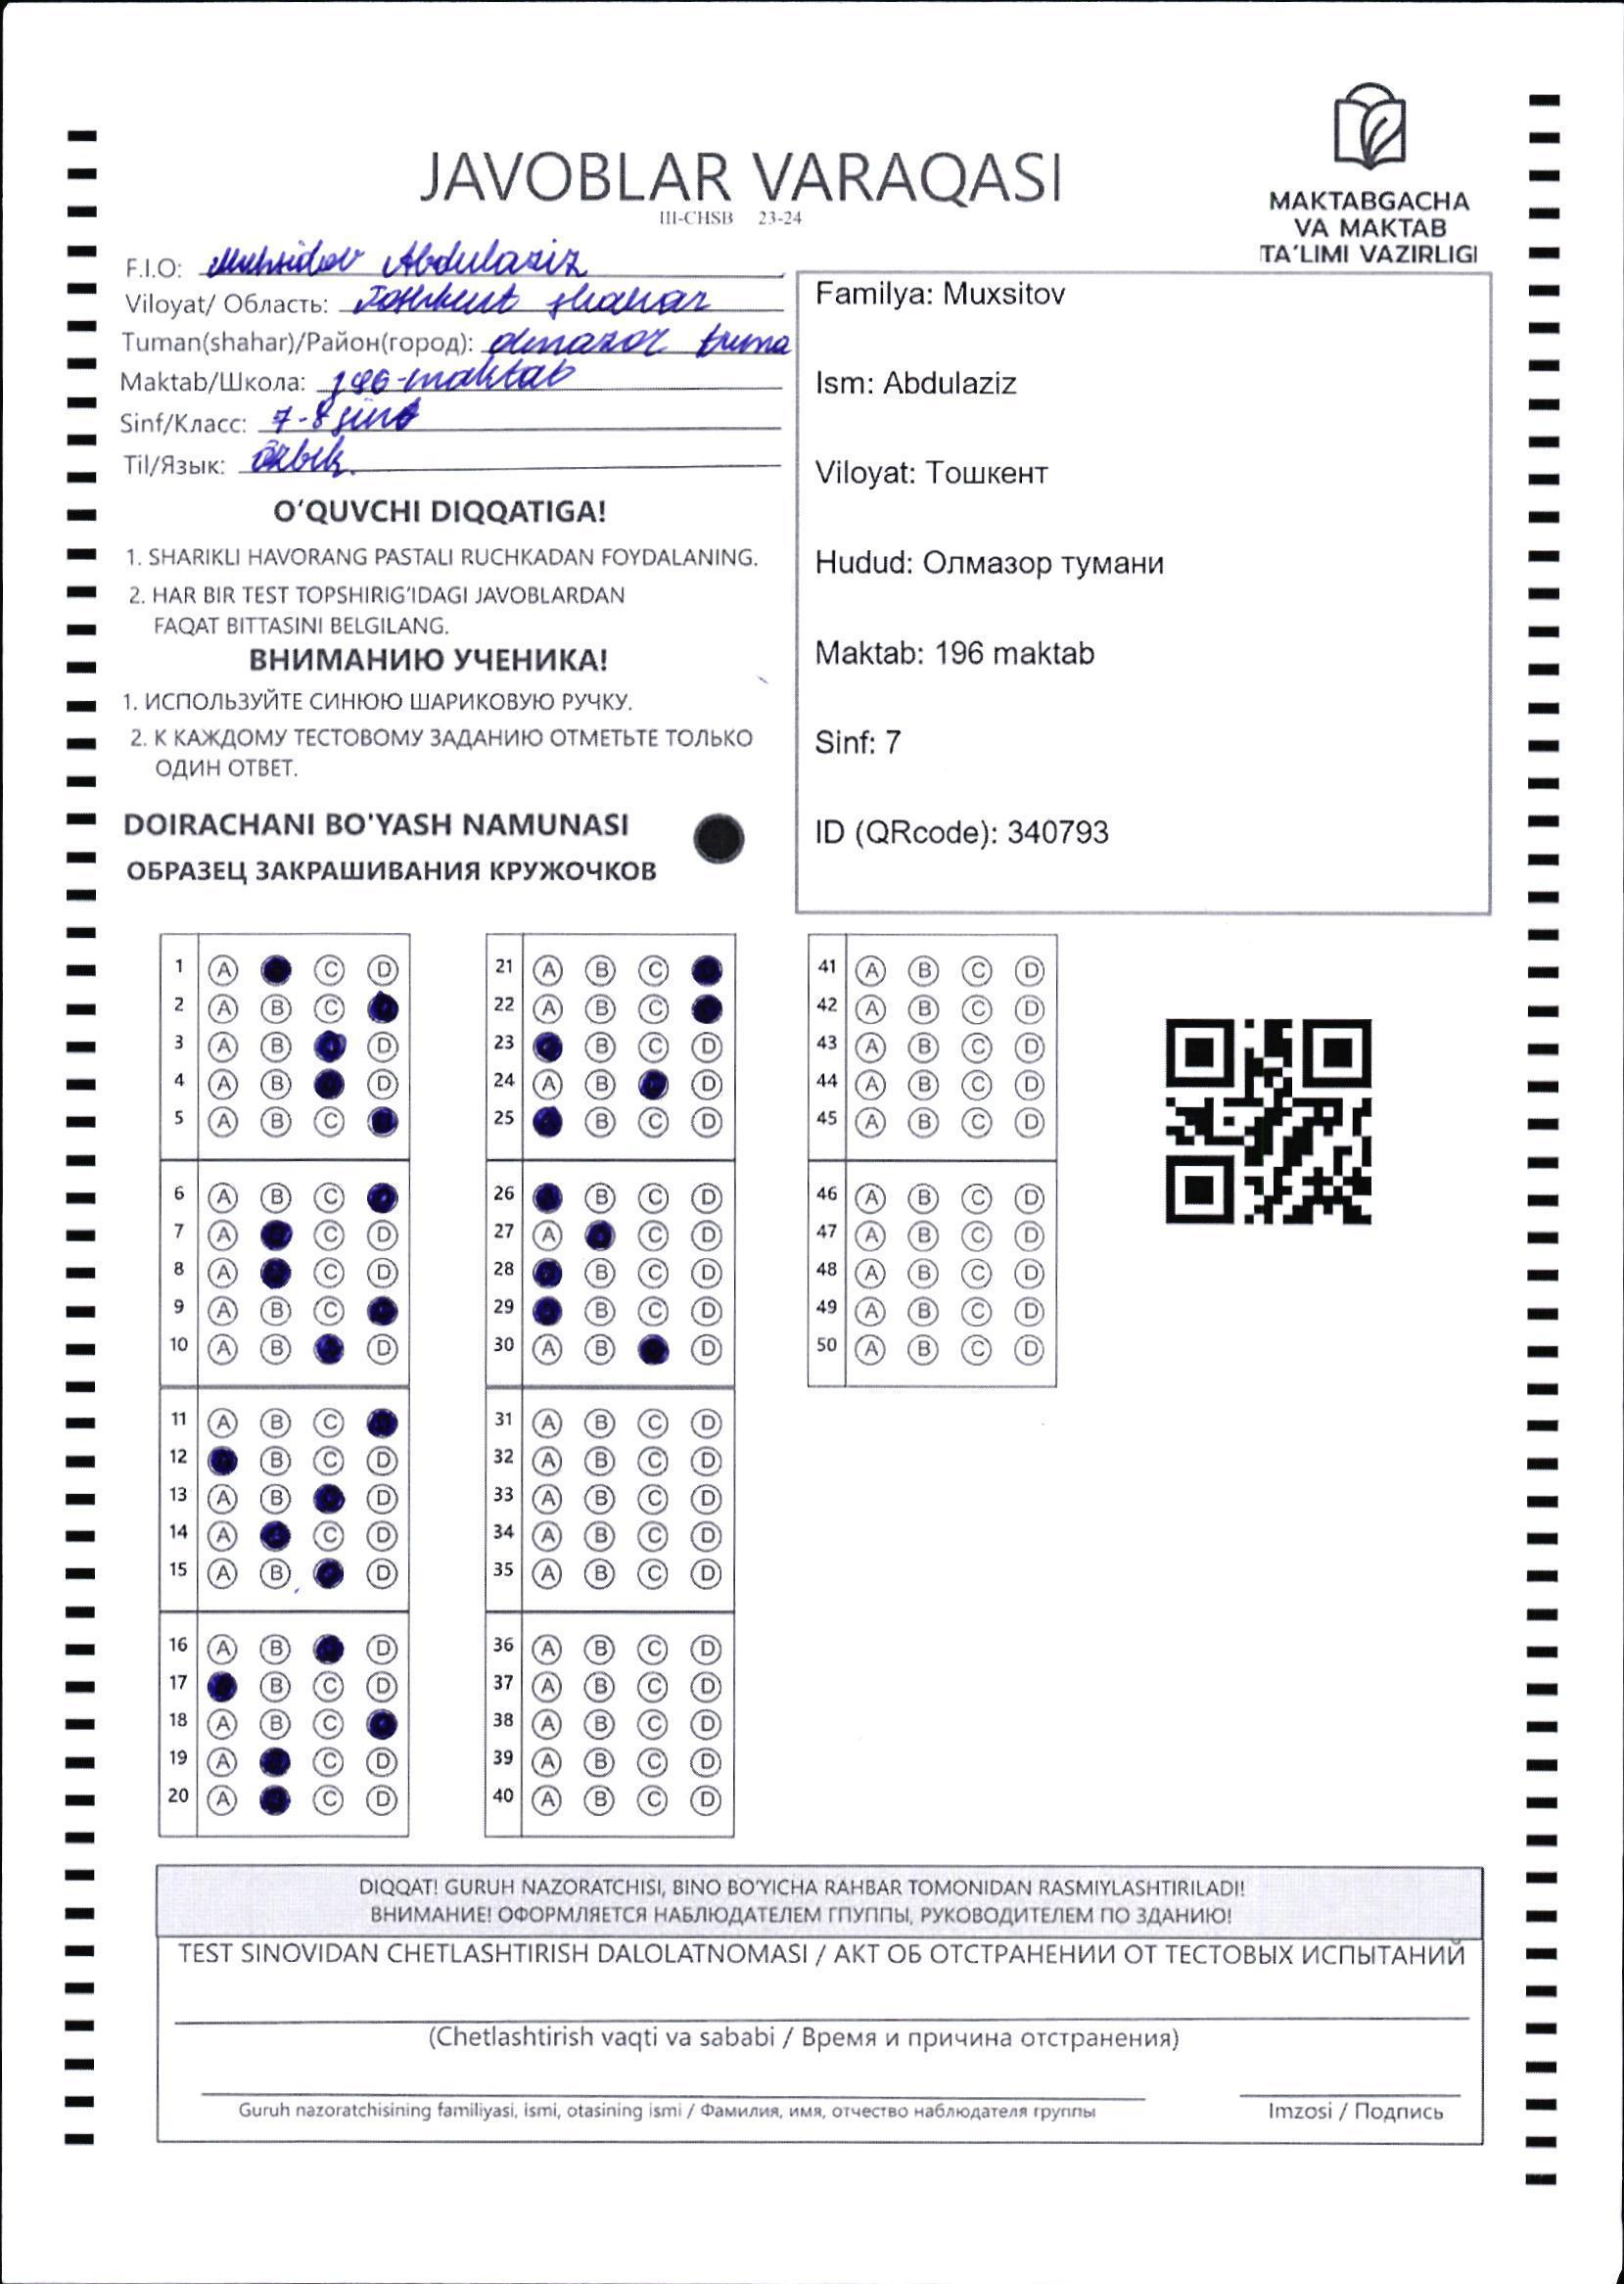 JAVOBLAR VARAQASI
III-CHSB 23-24
MAKTABGACHA
VA MAKTAB
TA'LIMI VAZIRLIGI
F.I.O: Muhsidov Abdulaziz
Viloyat/ Область: Toshkent shahar
Tuman(shahar)/Район(город): olmazor tuma
Maktab/Школа: 196-maktab
Sinf/Класс: 7-8 sinf
Til/Язык: Özbek.
O'QUVCHI DIQQATIGA!
1. SHARIKLI HAVORANG PASTALI RUCHKADAN FOYDALANING.
2. HAR BIR TEST TOPSHIRIG'IDAGI JAVOBLARDAN
FAQAT BITTASINI BELGILANG.
ВНИМАНИЮ УЧЕНИКА!
1. ИСПОЛЬЗУЙТЕ СИНЮЮ ШАРИКОВУЮ РУЧКУ.
2. К КАЖДОМУ ТЕСТОВОМУ ЗАДАНИЮ ОТМЕТЬТЕ ТОЛЬКО
ОДИН ОТВЕТ.
DOIRACHANI BO'YASH NAMUNASI
ОБРАЗЕЦ ЗАКРАШИВАНИЯ КРУЖОЧКОВ
Familya: Muxsitov
Ism: Abdulaziz
Viloyat: Тошкент
Hudud: Олмазор тумани
Maktab: 196 maktab
Sinf: 7
ID (QRcode): 340793
1 A C D
2 A B C
3 A B D
4 A B D
5 A B C
6 A B C
7 A C D
8 A C D
9 A B C
10 A B D
11 A B C
12 B C D
13 A B D
14 A C D
15 A B D
16 A B D
17 B C D
18 A B C
19 A C D
20 A C D
21 A B C
22 A B C
23 B C D
24 A B D
25 B C D
26 B C D
27 A C D
28 B C D
29 B C D
30 A B D
31 A B C D
32 A B C D
33 A B C D
34 A B C D
35 A B C D
36 A B C D
37 A B C D
38 A B C D
39 A B C D
40 A B C D
41 A B C D
42 A B C D
43 A B C D
44 A B C D
45 A B C D
46 A B C D
47 A B C D
48 A B C D
49 A B C D
50 A B C D
DIQQAT! GURUH NAZORATCHISI, BINO BO'YICHA RAHBAR TOMONIDAN RASMIYLASHTIRILADI!
ВНИМАНИЕ! ОФОРМЛЯЕТСЯ НАБЛЮДАТЕЛЕМ ГПУППЫ, РУКОВОДИТЕЛЕМ ПО ЗДАНИЮ!
TEST SINOVIDAN CHETLASHTIRISH DALOLATNOMASI / АКТ ОБ ОТСТРАНЕНИИ ОТ ТЕСТОВЫХ ИСПЫТАНИЙ
(Chetlashtirish vaqti va sababi / Время и причина отстранения)
Guruh nazoratchisining familiyasi, ismi, otasining ismi / Фамилия, имя, отчество наблюдателя группы
Imzosi / Подпись